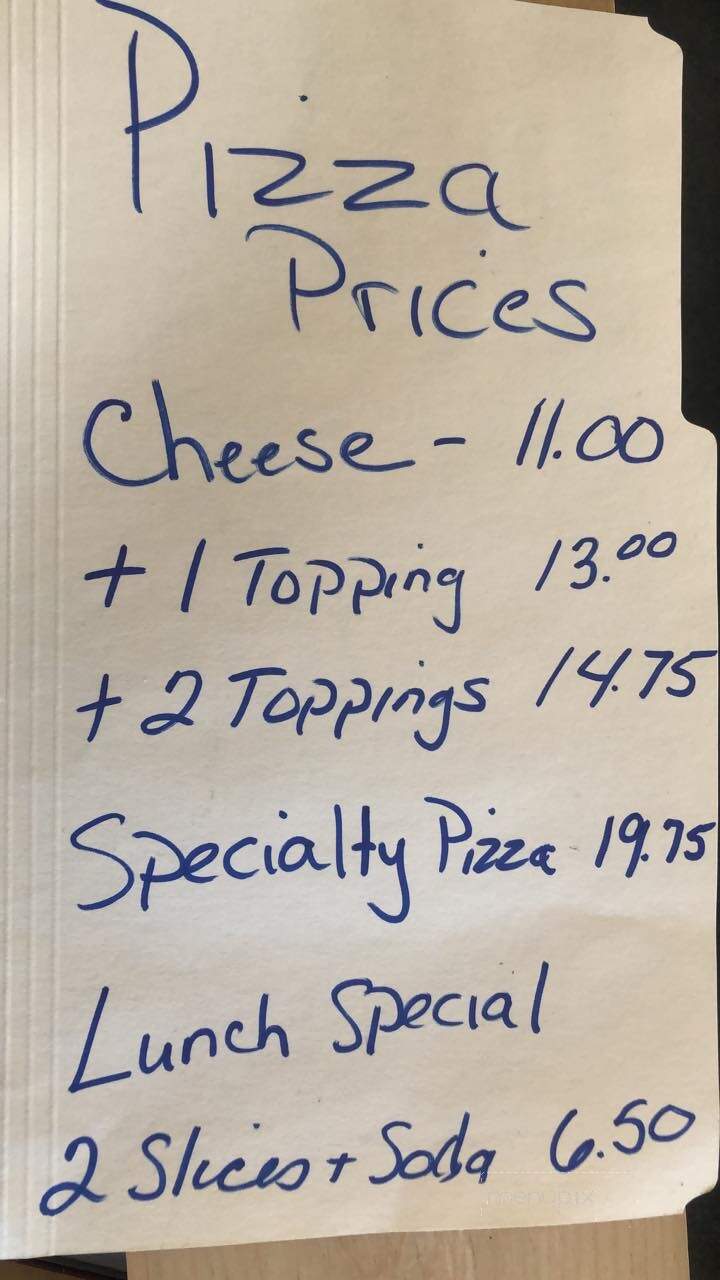 Pizza
Prices
Cheese - 11.00
+ 1 Topping 13.00
+ 2 Toppings 14.75
Specialty Pizza 19.75
Lunch Special
2 Slices + Soda 6.50
menupix